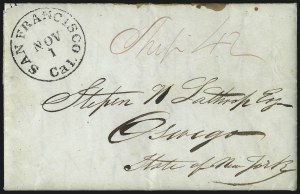 SAN FRANCISCO
NOV
1
Cal.
Ship 42
Stepen N Lathrop Esq
Oswego
State of New York